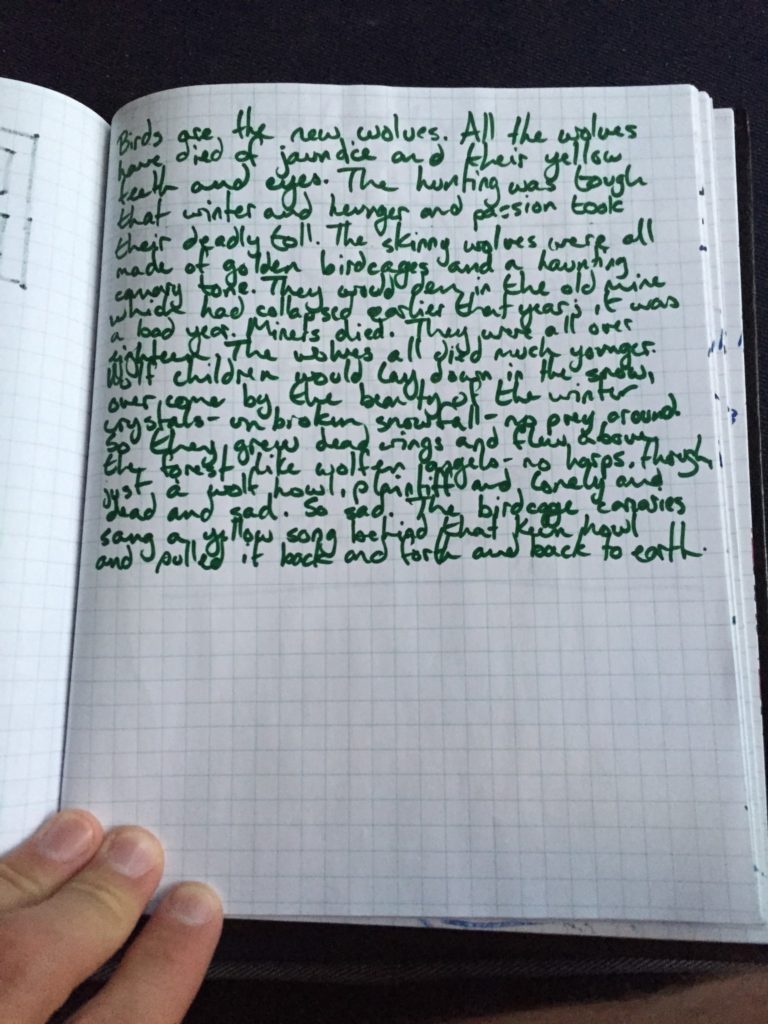 Birds are the new wolves. All the wolves
have died of jaundice and their yellow
teeth and eyes. The hunting was tough
that winter and hunger and passion took
their deadly toll. The skinny wolves were all
made of golden birdcages and a haunting
canary tone. They would den in the old mine
which had collapsed earlier that year; it was
a bad year. Miners died. They were all over
eighteen. The wolves all died much younger.
Wolf children would lay down in the snow,
over come by the beauty of the winter
crystals - un broken snowfall - no prey around.
So they grew dead wings and flew above
the forest like wolfen angels - no harps, though,
just a wolf howl, plaintiff and lonely and
dead and sad. So sad. The birdcage canaries
sang a yellow song behind that keen howl
and pulled it back and forth and back to earth.